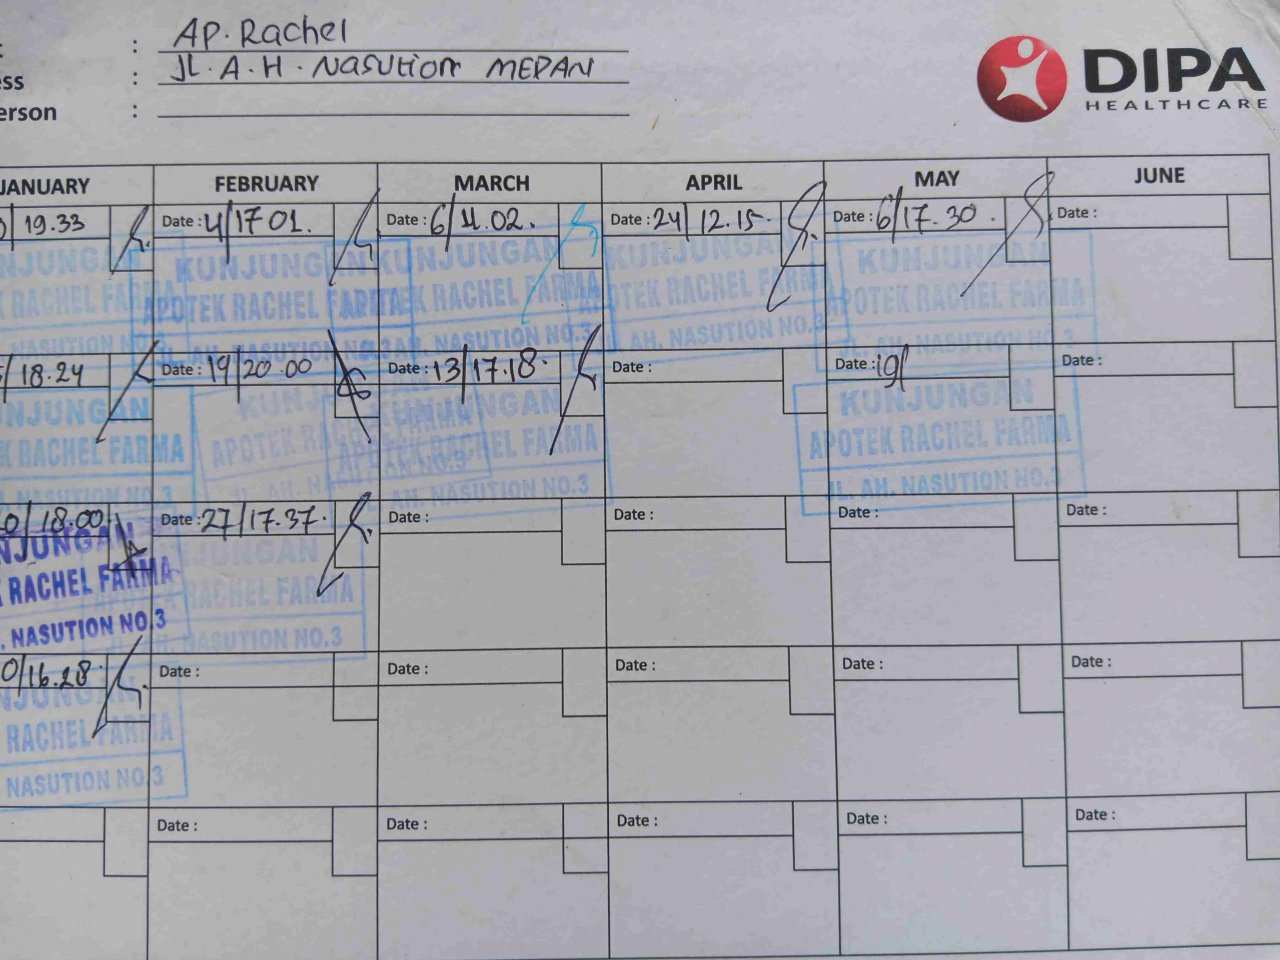 : AP. Rachel
ess : JL. A. H. Nasution MEDAN
erson :
DIPA
HEALTHCARE
JANUARY FEBRUARY MARCH APRIL MAY JUNE
/ 19.33 Date : 4/17 01. Date : 6/11.02. Date : 24/12.15. Date : 6/17.30. Date :
NJUNGAN KUNJUNGAN KUNJUNGAN KUNJUNGAN KUNJUNGAN
RACHEL FARMA APOTEK RACHEL FARMA RACHEL FARMA APOTEK RACHEL FARMA APOTEK RACHEL FARMA
NASUTION NO.3 JL. AH. NASUTION NO.3 AH. NASUTION NO.3 JL. AH. NASUTION NO.3 JL. AH. NASUTION NO.3
/ 18.24 Date : 19/20.00 Date : 13/17.18. Date : Date : 19/ Date :
NJUNGAN KUNJUNGAN KUNJUNGAN KUNJUNGAN
RACHEL FARMA APOTEK RACHEL FARMA APOTEK RACHEL FARMA APOTEK RACHEL FARMA
NASUTION NO.3 JL. AH. NASUTION NO.3 AH. NASUTION NO.3 JL. AH. NASUTION NO.3
0/18.00 Date : 27/17.37. Date : Date : Date : Date :
NJUNGAN KUNJUNGAN
RACHEL FARMA APOTEK RACHEL FARMA
NASUTION NO.3 JL. AH. NASUTION NO.3
0/16.28 Date : Date : Date : Date : Date :
NJUNGAN
RACHEL FARMA
NASUTION NO.3
Date : Date : Date : Date : Date :